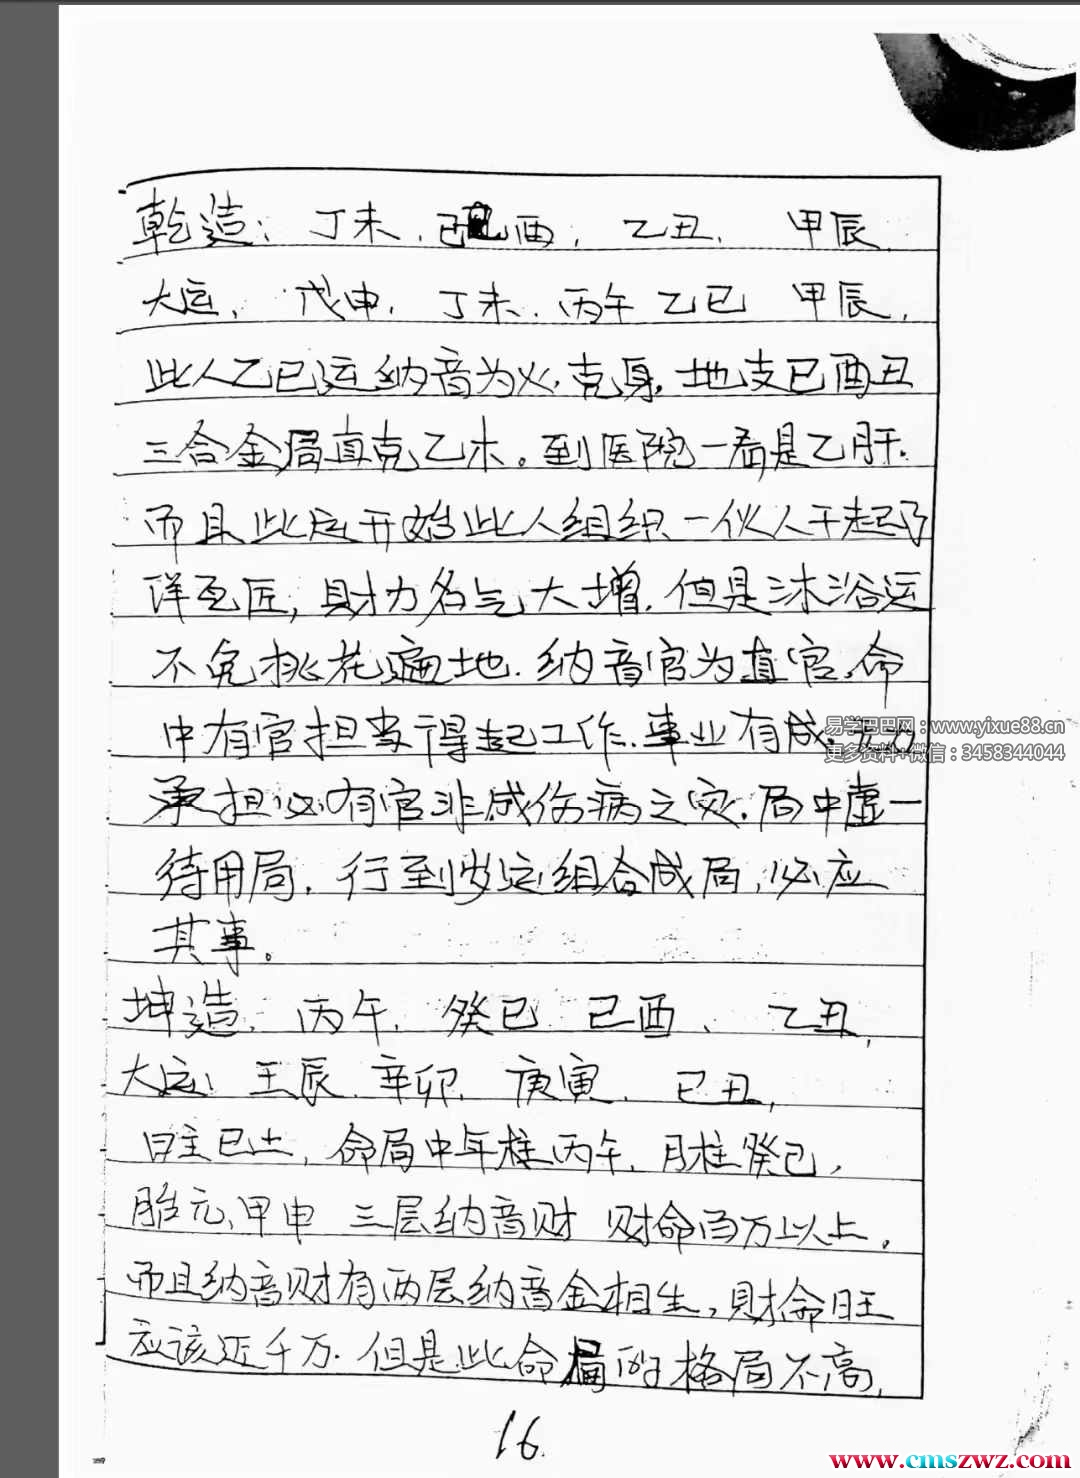 乾造：丁未．己酉．乙丑．甲辰．
大运．戊申．丁未．丙午 乙巳 甲辰，
此人乙巳运纳音为火．克身．地支巳酉丑
三合金局直克乙木。到医院一看是乙肝．
而且此运开始此人组织一伙人干起了
泥瓦匠，财力名气大增．但是沐浴运
不免桃花遍地．纳音官为直官．命
中有官担当得起工作．事业有成．
承担必有官非或伤病之灾．局中虚一
待用局．行到岁运组合成局，必应
其事。
坤造．丙午．癸巳 己酉、乙丑，
大运：壬辰．辛卯．庚寅．己丑，
日主己土，命局中年柱丙午．月柱癸巳，
胎元、甲申 三层纳音财 财命百万以上。
而且纳音财有两层纳音金相生，财命旺
应该近千万．但是此命局的格局不高，
16.
易学巴巴网：www.yixue88.cn
更多资料+微信：3458344044
www.cmszwz.com